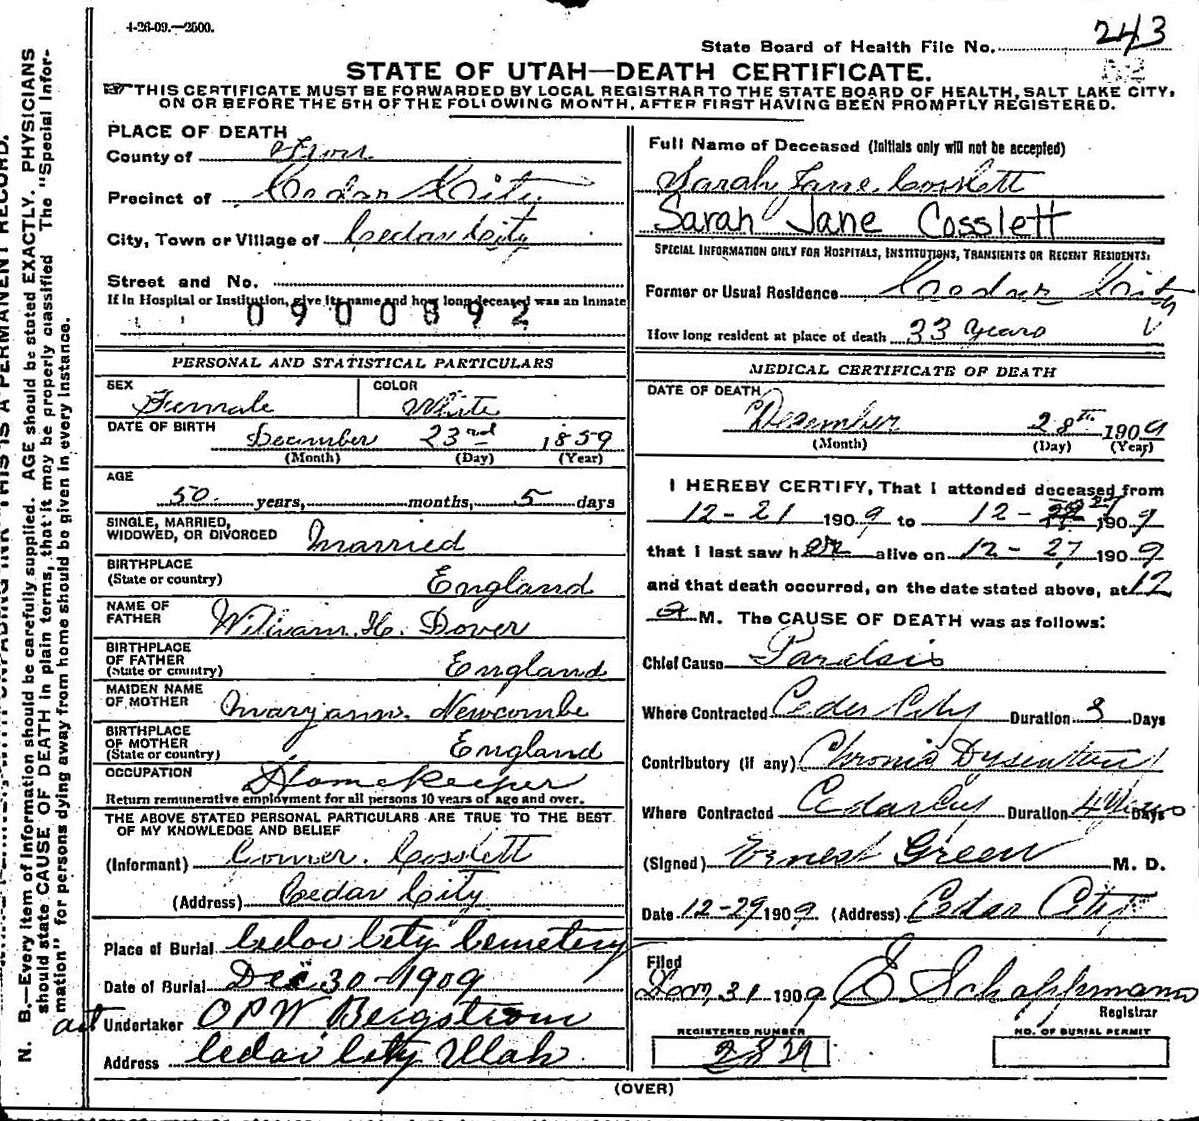 4-26-09.—2500.
State Board of Health File No. 243
82
STATE OF UTAH—DEATH CERTIFICATE.
THIS CERTIFICATE MUST BE FORWARDED BY LOCAL REGISTRAR TO THE STATE BOARD OF HEALTH, SALT LAKE CITY,
ON OR BEFORE THE 5TH OF THE FOLLOWING MONTH, AFTER FIRST HAVING BEEN PROMPTLY REGISTERED.
PLACE OF DEATH
County of Iron
Precinct of Cedar City
City, Town or Village of Cedar City
Street and No.
If in Hospital or Institution, give its name and how long deceased was an inmate
0900892
PERSONAL AND STATISTICAL PARTICULARS
SEX Female COLOR White
DATE OF BIRTH December 23rd 1859
(Month) (Day) (Year)
AGE
50 years, months, 5 days
SINGLE, MARRIED,
WIDOWED, OR DIVORCED Married
BIRTHPLACE
(State or country) England
NAME OF
FATHER William H. Dover
BIRTHPLACE
OF FATHER
(State or country) England
MAIDEN NAME
OF MOTHER Maryann Newcombe
BIRTHPLACE
OF MOTHER
(State or country) England
OCCUPATION Homekeeper
Return remunerative employment for all persons 10 years of age and over.
THE ABOVE STATED PERSONAL PARTICULARS ARE TRUE TO THE BEST
OF MY KNOWLEDGE AND BELIEF
(Informant) Gomer Cosslett
(Address) Cedar City
Place of Burial Cedar City Cemetery
Date of Burial Dec 30-1909
act Undertaker OPW Bergstrom
Address Cedar City Utah
Full Name of Deceased (Initials only will not be accepted)
Sarah Jane Cosslett
Sarah Jane Cosslett
SPECIAL INFORMATION ONLY FOR HOSPITALS, INSTITUTIONS, TRANSIENTS OR RECENT RESIDENTS:
Former or Usual Residence Cedar City
How long resident at place of death 33 years
MEDICAL CERTIFICATE OF DEATH
DATE OF DEATH December 28th 1909
(Month) (Day) (Year)
I HEREBY CERTIFY, That I attended deceased from
12-21 1909 to 12-27 1909
that I last saw her alive on 12-27, 1909
and that death occurred, on the date stated above, at 12
a M. The CAUSE OF DEATH was as follows:
Chief Cause
Where Contracted Cedar City Duration 3 Days
Contributory (if any) Chronic Dysentary
Where Contracted Cedar City Duration Days
(Signed) Ernest Green M. D.
Date 12-29 1909. (Address) Cedar City
Filed
31 1909 E Schoppmann
Registrar
REGISTERED NUMBER
2829
NO. OF BURIAL PERMIT
(OVER)
N. B.—Every item of information should be carefully supplied. AGE should be stated EXACTLY. PHYSICIANS
should state CAUSE OF DEATH in plain terms, that it may be properly classified The "Special Infor-
mation" for persons dying away from home should be given in every instance.
THIS IS A PERMANENT RECORD.